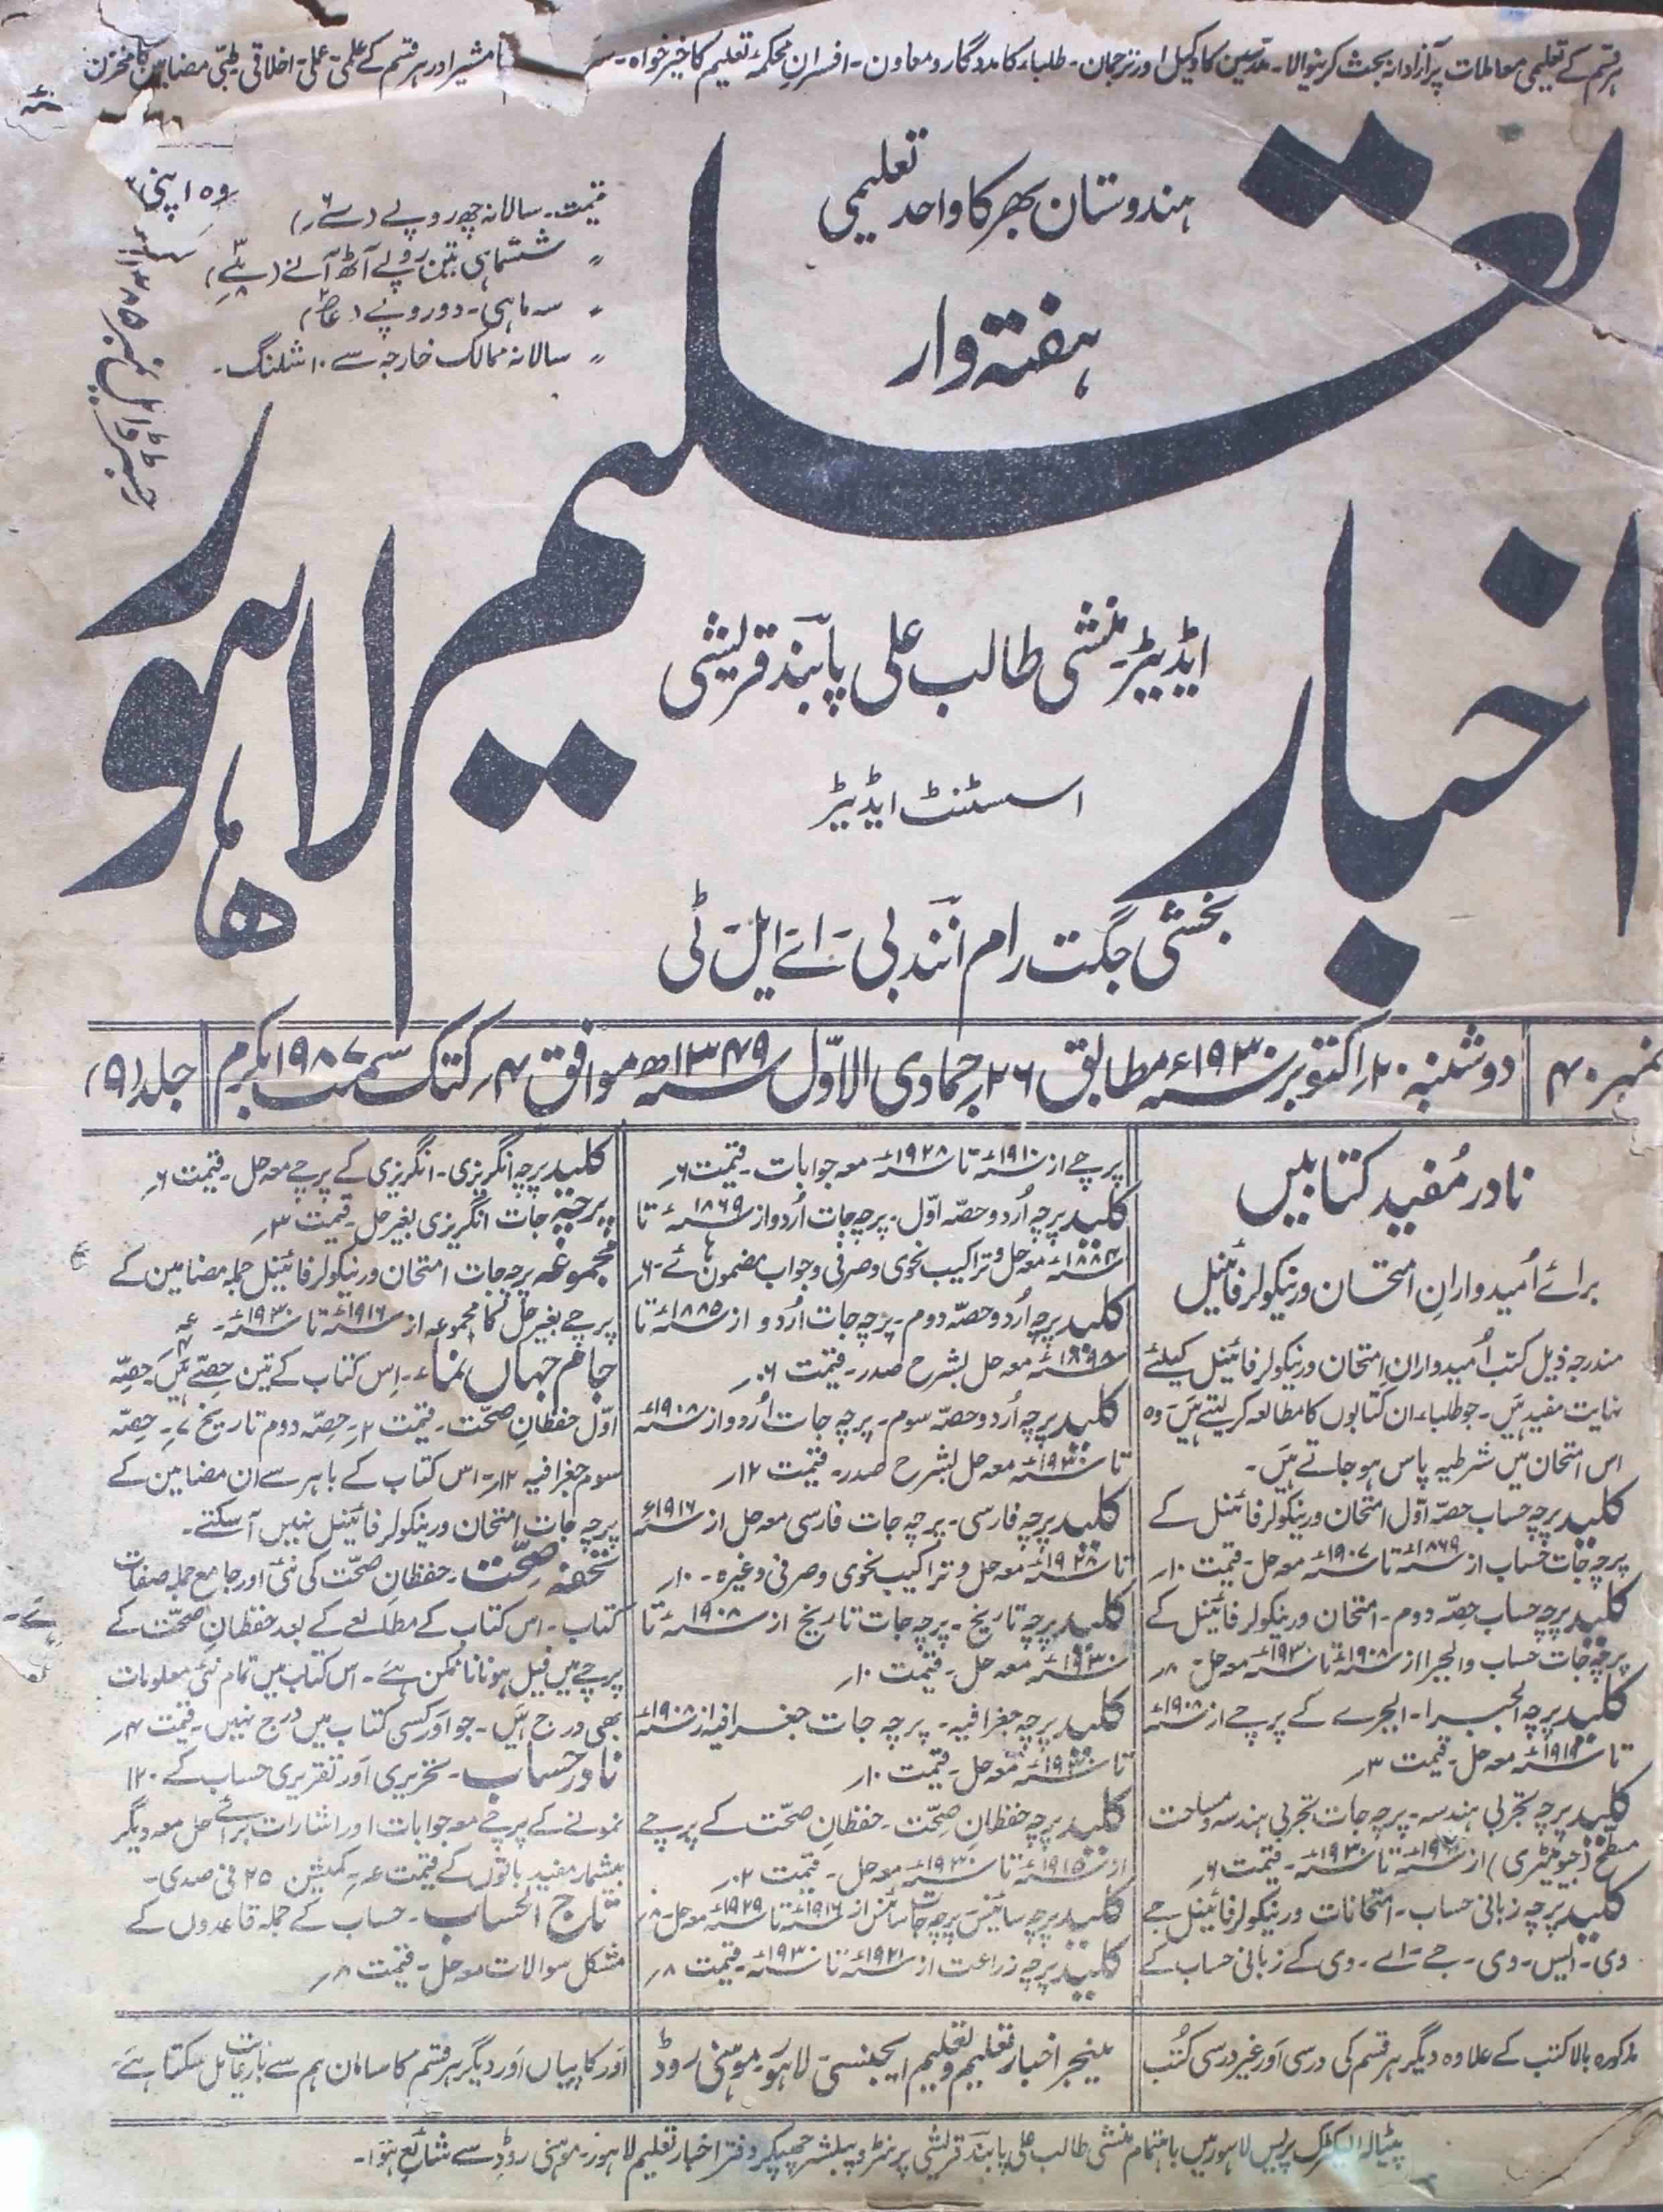 ہر قسم کے تعلیمی معاملات پر آزادانہ بحث کرنیوالا۔ مدرسین کا وکیل اور ترجمان۔ طلباء کا مددگار و معاون۔ افسرانِ محکمۂ تعلیم کا خیرخواہ۔ مشیر اور ہر قسم کے علمی۔ عملی۔ اخلاقی طبّی مضامین کا مخزن
ہندوستان بھر کا واحد تعلیمی
ہفتہ وار
قیمت۔ سالانہ چھ روپے
〃 ششماہی تین روپے آٹھ آنے
〃 سہ ماہی۔ دو روپے
〃 سالانہ ممالک خارجہ سے ۱۰ شلنگ۔
اخبار تعلیم لاہور
ایڈیٹر۔ منشی طالب علی پابند قریشی
اسسٹنٹ ایڈیٹر
بخشی جگت رام انند بی۔ اے۔ ایل۔ ٹی
نمبر ۴۰
دوشنبہ ۲۰؍ اکتوبر سنہ ۱۹۳۰ء مطابق ۲۶؍ جمادی الاوّل سنہ ۱۳۴۹ھ موافق ۴؍ کتک سمت ۱۹۸۷ بکرم
جلد (۹)
نادر مُفید کتابیں
برائے اُمیدوارانِ امتحان ورنیکولر فائینل
مندرجہ ذیل کتب اُمیدوارانِ امتحان ورنیکولر فائینل کیلئے
نہایت مفید ہیں۔ جو طلباء ان کتابوں کا مطالعہ کر لیتے ہیں۔ وہ
اس امتحان میں شرطیہ پاس ہو جاتے ہیں۔
کلید پرچہ حساب حصّہ اوّل امتحان ورنیکولر فائینل کے
پرچہ جات حساب از سنہ ۱۸۶۹ء تا سنہ ۱۹۰۷ء معہ حل۔ قیمت ۱۰؍
کلید پرچہ حساب حصّہ دوم۔ امتحان ورنیکولر فائینل کے
پرچہ جات حساب والجبرا از سنہ ۱۹۰۸ء تا سنہ ۱۹۳۰ء معہ حل۔ ۸؍
کلید پرچہ الجبرا۔ الجبرے کے پرچے از سنہ ۱۹۰۸ء
تا سنہ ۱۹۱۹ء معہ حل۔ قیمت ۳؍
کلید پرچہ تجربی ہندسہ۔ پرچہ جات تجربی ہندسہ و مساحت
سطح (جیومیٹری) از تا سنہ ۱۹۳۰ء۔ قیمت ۶؍
کلید پرچہ زبانی حساب۔ امتحانات ورنیکولر فائینل جے
وی۔ ایس۔ وی۔ جے۔ اے۔ وی کے زبانی حساب کے
پرچے از سنہ ۱۹۱۰ء تا سنہ ۱۹۲۸ء معہ جوابات۔ قیمت ۶؍
کلید پرچہ اُردو حصّہ اوّل۔ پرچہ جات اُردو از سنہ ۱۸۶۹ء تا
سنہ ۱۸۸۴ء معہ حل و تراکیب نحوی و صرفی و جواب مضمون ہائے۔ ۶؍
کلید پرچہ اُردو حصّہ دوم۔ پرچہ جات اُردو از سنہ ۱۸۸۵ء تا
معہ حل بشرح صدر۔ قیمت ۰۶؍
کلید پرچہ اُردو حصّہ سوم۔ پرچہ جات اُردو از سنہ ۱۹۰۸ء
تا سنہ ۱۹۳۰ء معہ حل بشرح صدر۔ قیمت ۱۲؍
کلید پرچہ فارسی۔ پرچہ جات فارسی معہ حل از سنہ ۱۹۱۶ء
تا سنہ ۱۹۲۸ء معہ حل و تراکیب نحوی و صرفی وغیرہ۔ ۱۰؍
کلید پرچہ تاریخ۔ پرچہ جات تاریخ از سنہ ۱۹۰۸ء تا
سنہ ۱۹۳۰ء معہ حل۔ قیمت ۱۰؍
کلید پرچہ جغرافیہ۔ پرچہ جات جغرافیہ از سنہ ۱۹۰۸ء
تا سنہ ۱۹۳۰ء معہ حل۔ قیمت ۱۰؍
کلید پرچہ حفظانِ صحّت۔ حفظانِ صحّت کے پرچے
از سنہ ۱۹۱۵ء تا سنہ ۱۹۳۰ء معہ حل۔ قیمت ۰۲؍
کلید پرچہ سائینس پرچہ جات سائنس از سنہ ۱۹۱۶ء تا سنہ ۱۹۲۹ء معہ حل۔ ۸؍
کلید پرچہ زراعت از سنہ ۱۹۲۱ء تا سنہ ۱۹۳۰ء۔ قیمت ۸؍
کلید پرچہ انگریزی۔ انگریزی کے پرچے معہ حل۔ قیمت ۶؍
پرچہ جات انگریزی بغیر حل۔ قیمت ۳؍
مجموعہ پرچہ جات امتحان ورنیکولر فائینل جملہ مضامین کے
پرچے بغیر حل کا مجموعہ از سنہ ۱۹۱۶ء تا سنہ ۱۹۳۰ء۔
جام جہاں نما۔ اِس کتاب کے تین حِصّے ہیں۔ حِصّہ
اوّل حفظانِ صحّت۔ قیمت ۲؍۔ حِصّہ دوم تاریخ ۷؍۔ حِصّہ
سوم جغرافیہ ۱۲؍۔ اس کتاب کے باہر سے ان مضامین کے
پرچہ جات امتحان ورنیکولر فائینل نہیں آ سکتے۔
تحفہ صحّت۔ حفظانِ صحّت کی نئی اور جامع جملہ صفات
کتاب۔ اس کتاب کے مطالعے کے بعد حفظانِ صحّت کے
پرچے میں فیل ہونا ناممکن ہے۔ اس کتاب میں تمام نئی معلومات
بھی درج ہیں۔ جو اَور کسی کتاب میں درج نہیں۔ قیمت ۴؍
نادر حساب۔ تحریری اَور تقریری حساب کے ۱۲۰
نمونے کے پرچے معہ جوابات اور اشارات برائے حل معہ دیگر
بیشمار مفید باتوں کے قیمت ۔ کمیشن ۲۵ فی صدی۔
تاج الحساب۔ حساب کے جملہ قاعدوں کے
مشکل سوالات معہ حل۔ قیمت ۸؍
مذکورہ بالا کتب کے علاوہ دیگر ہر قسم کی درسی اَور غیر درسی کُتب
مینجر اخبار تعلیم و تعلیم ایجنسی۔ لاہور۔ موہنی روڈ
اَور کاپیاں اَور دیگر ہر قسم کا سامان ہم سے بارعایت مل سکتا ہے۔
پٹیالہ الیکٹرک پریس لاہور میں باہتمام منشی طالب علی پابند قریشی پرنٹر و پبلشر چھپکر دفتر اخبار تعلیم لاہور۔ موہنی روڈ سے شائع ہوا۔